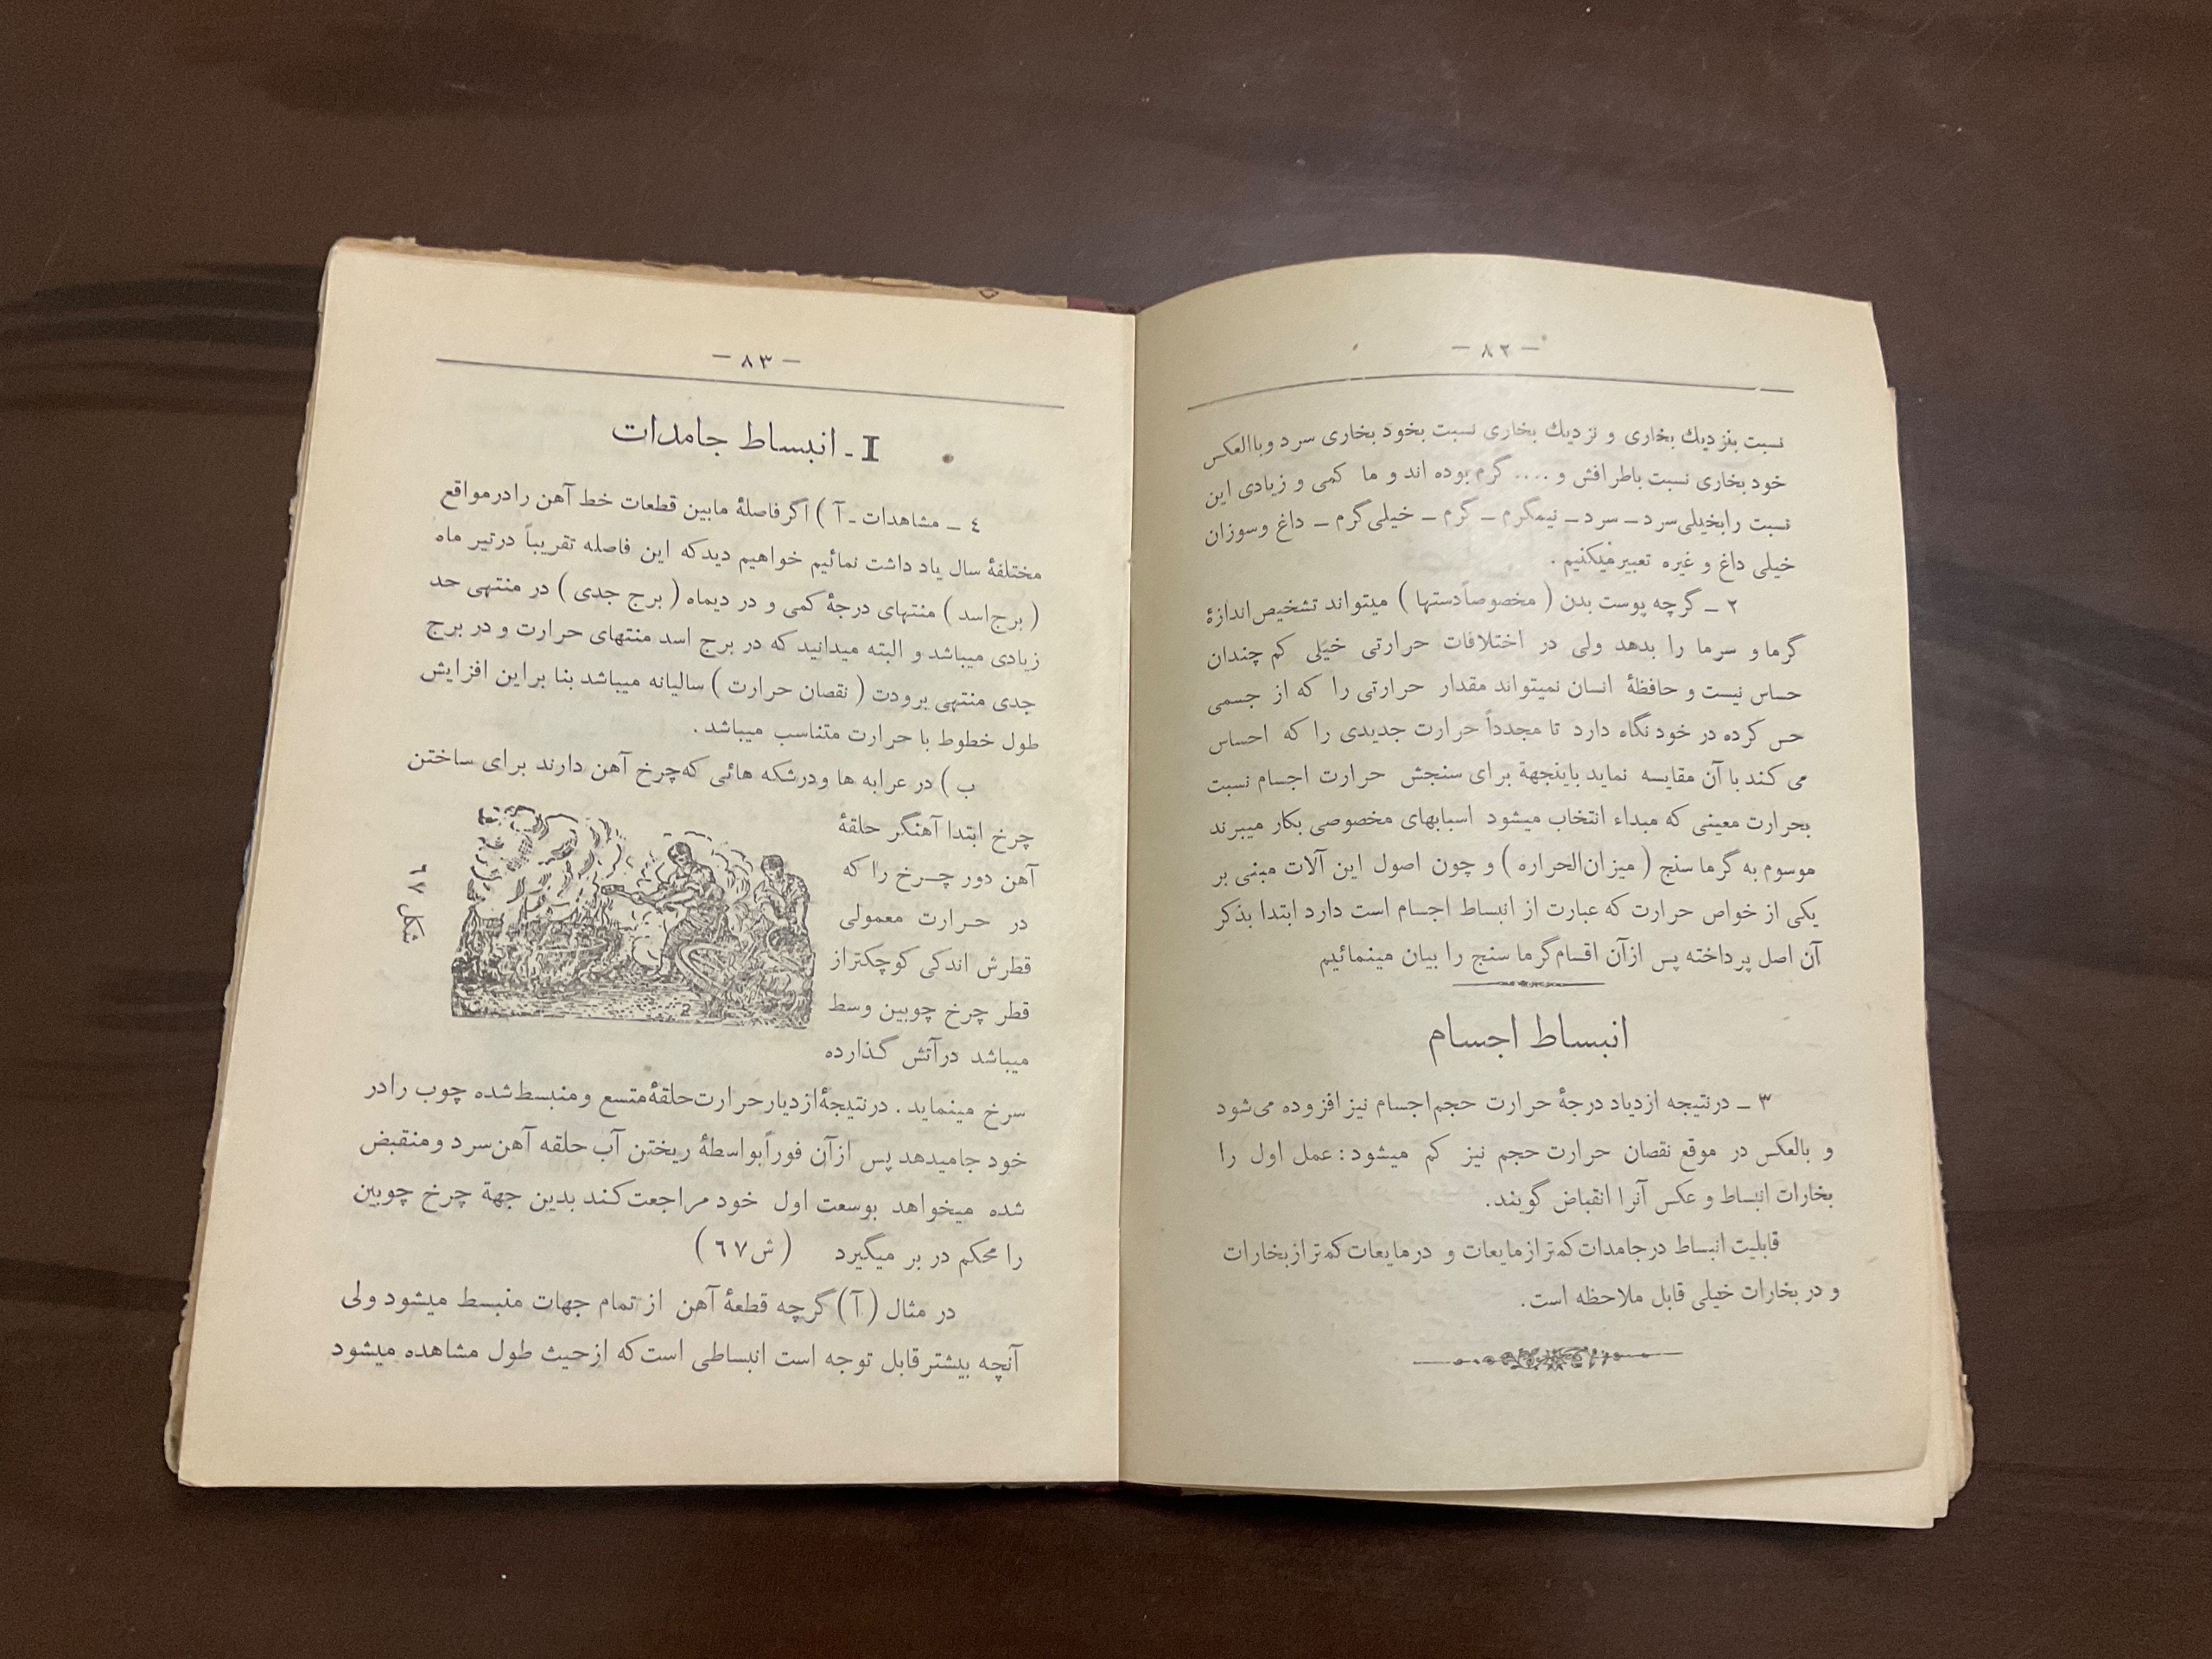 — ٨٢ —
نسبت بنزدیك بخاری و نزدیك بخاری نسبت بخود بخاری سرد وباالعکس
خود بخاری نسبت باطرافش و .... گرم بوده اند و ما کمی و زیادی این
نسبت رابخیلی‌سرد ــ سرد ــ نیمگرم ــ گرم ــ خیلی‌گرم ــ داغ وسوزان
خیلی داغ و غیره تعبیرمیکنیم .
٢ ــ گرچه پوست بدن ( مخصوصاً دستها ) میتواند تشخیص‌اندازهٔ
گرما و سرما را بدهد ولی در اختلافات حرارتی خیلی کم چندان
حساس نیست و حافظهٔ انسان نمیتواند مقدار حرارتی را که از جسمی
حس کرده در خود نگاه دارد تا مجدداً حرارت جدیدی را که احساس
می کند با آن مقایسه نماید باینجهة برای سنجش حرارت اجسام نسبت
بحرارت معینی که مبداء انتخاب میشود اسبابهای مخصوصی بکار میبرند
موسوم به گرما سنج ( میزان‌الحراره ) و چون اصول این آلات مبنی بر
یکی از خواص حرارت که عبارت از انبساط اجسام است دارد ابتدا بذکر
آن اصل پرداخته پس ازآن اقسام‌گرما سنج را بیان مینمائیم
انبساط اجسام
٣ ــ درنتیجه ازدیاد درجهٔ حرارت حجم‌اجسام نیزافزوده می‌شود
و بالعکس در موقع نقصان حرارت حجم نیز کم میشود : عمل اول را
بخارات انبساط و عکس آنرا انقباض گویند.
قابلیت انبساط درجامدات‌کمترازمایعات و درمایعات‌کمترازبخارات
و در بخارات خیلی قابل ملاحظه است.
— ٨٣ —
I ـ انبساط جامدات
٤ ــ مشاهدات ـ آ ) اگرفاصلهٔ مابین قطعات خط آهن رادرمواقع
مختلفهٔ سال یاد داشت نمائیم خواهیم دیدکه این فاصله تقریباً درتیر ماه
( برج‌اسد ) منتهای درجهٔ کمی و در دیماه ( برج جدی ) در منتهی حد
زیادی میباشد و البته میدانید که در برج اسد منتهای حرارت و در برج
جدی منتهی برودت ( نقصان حرارت ) سالیانه میباشد بنا براین افزایش
طول خطوط با حرارت متناسب میباشد .
ب ) در عرابه ها ودرشکه هائی که‌چرخ آهن دارند برای ساختن
چرخ ابتدا آهنگر حلقهٔ
آهن دور چرخ را که
در حرارت معمولی
قطرش اندکی کوچکتراز
قطر چرخ چوبین وسط
میباشد درآتش گذارده
شکل ٦٧
سرخ مینماید . درنتیجهٔ‌ازدیارحرارت‌حلقهٔ‌متسع ومنبسط‌شده چوب رادر
خود جامیدهد پس ازآن فوراً‌بواسطهٔ ریختن آب حلقه آهن‌سرد ومنقبض
شده میخواهد بوسعت اول خود مراجعت‌کند بدین جهة چرخ چوبین
را محکم در بر میگیرد ( ش ٦٧ )
در مثال ( آ ) گرچه قطعهٔ آهن از تمام جهات منبسط میشود ولی
آنچه بیشترقابل توجه است انبساطی است‌که ازحیث طول مشاهده میشود